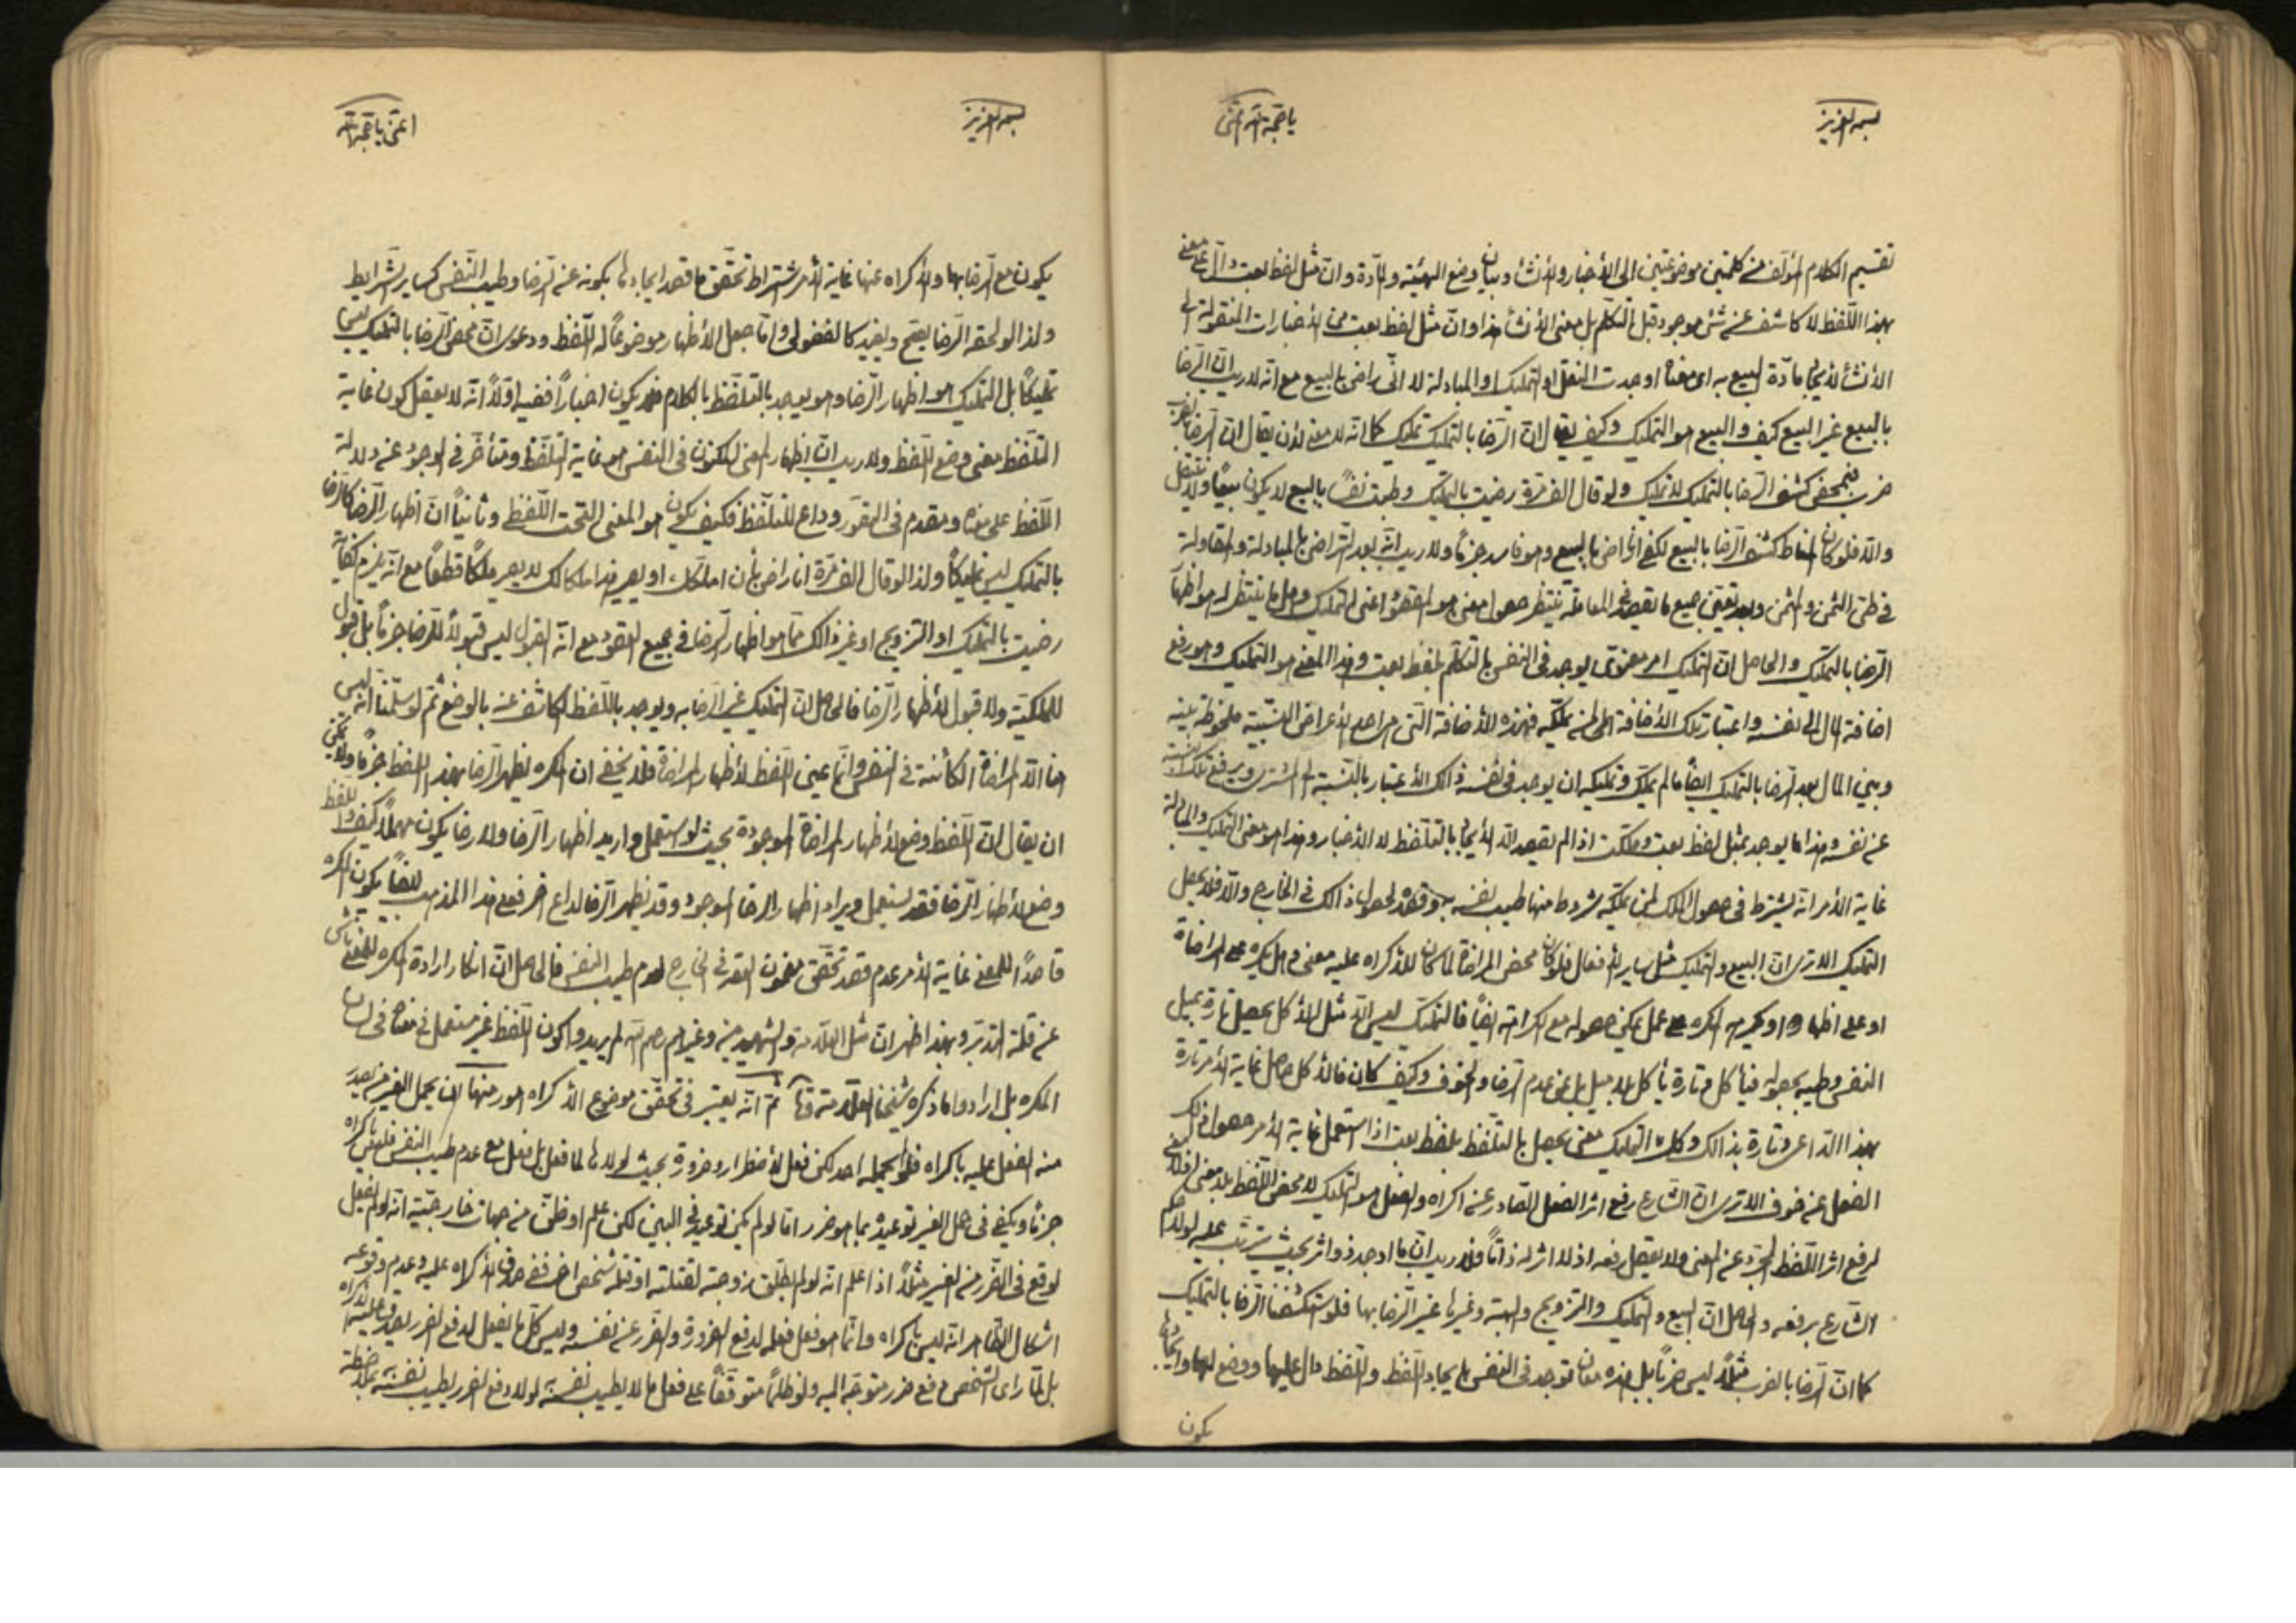 بسمه العزیز
یا حجة الله اغثنی
تقسیم الکلام المؤلف من کلمتین موضوعتین الی الأخبار والأنشاء و بیان وضع الهیئیة والمادة وان مثل لفظ بعت دال علی معنی
بهذا اللفظ لا کاشف عن شئ موجود قبل التکلم بل معنی الأنشاء هذا وان مثل لفظ بعت من الأخبارات المنقولة الی
الأنشاء لأیجاد مادة البیع به ای معناه اوجدت النقل او التملیک او المبادلة لا انی راض بالبیع مع انه لا ریب ان الرضا
بالبیع غیر البیع کیف و البیع هو التملیک وکیف یقال ان الرضا بالتملیک تملیک کما انه لا معنی لأن یقال ان الرضا بالضرب
ضرب فبمحض کشف الرضا بالتملیک لا تملیک ولو قال الف مرة رضیت بالتملیک وطبت نفساً بالبیع لا یکون بیعاً ولا ینتقل
والا فلو کان المناط کشف الرضا بالبیع لکفی انا راض بالبیع وهو فاسد جزماً ولا ریب انه بعد التراضی بالمبادلة والمقاولة
فی طی الثمن والمثمن وبعد تعیین جمیع ما یقصد فی المعاملة ینتظر حصول معنی هو المقصود اعنی التملیک وهل ما ینتظر له هو اظهار
الرضا بالتملیک والحاصل ان التملیک امر معنوی یوجد فی النفس بالتکلم بلفظ بعت وهذا المعنی هو التملیک وهو رفع
اضافة المال الی نفسه واعتبار تلک الأضافة الی من یملکه فهذه الأضافة التی هی احد الأعراض النسبیة ملحوظة بینه
وبین المال بعد الرضا بالتملیک ایضاً ما لم یملک وتملیکه ان یوجد فی نفسه ذالک الأعتبار بالنسبة الی المشتری ویرفع تلک النسبة
عن نفسه وهذا ما یوجد بمثل لفظ بعت وملکت اذا لم یقصد الا الأیجاد بالتلفظ لا الأخبار وهذا هو معنی التملیک والمبادلة
غایة الأمر انه یشترط فی حصول الملک لمن یملکه شروط منها طیب نفسه بوقوعه لحصول ذالک فی الخارج والا فلا یحصل
التملیک الا تری ان البیع والتملیک مثل سایر الأفعال فلو کان محض المراضاة لما کان للأکراه علیه معنی وهل یکره علی المراضاة
او علی اظهارها وکره المکره علی عمل یمکن حصوله مع الکراهة ایضاً فالتملیک لیس الا مثل الأکل یحصل تارة بمیل
النفس وطیبه بحصوله فیأکل وتارة یأکل بلا میل بل عن عدم الرضا والخوف وکیف کان فالأکل حاصل غایة الأمر تارة
بهذا الداعی وتارة بذالک وکذا التملیک معنی یحصل بالتلفظ بلفظ بعت اذا استعمل غایة الأمر حصول ذلک
الفعل عن خوف الا تری ان الشارع رفع اثر الفعل الصادر عن اکراه والفعل هو التملیک لا محض اللفظ بلا معنی فلا معنی
لرفع اثر اللفظ المجرد عن المعنی ولا یعقل رفعه اذ لا اثر له ذاتاً فلا ریب ان ما اوجد ذو اثر بحیث یترتب علیه لولا حکم
الشارع برفعه والحاصل ان البیع والتملیک والتزویج والهبة وغیرها غیر الرضا بها فلو استکشفنا الرضا بالتملیک
کما ان الرضا بالضرب مثلاً لیس ضرباً بل هذه معان توجد فی النفس بایجاد اللفظ واللفظ دال علیها ووضع لها وایجادها
یکون
بسمه العزیز
اغثنی یا حجة الله
یکون مع الرضا بها والأکراه عنها غایة الأمر اشتراط تحقق ما قصد ایجادها بکونه عن الرضا وطیب النفس کسایر الشرایط
ولذا لو لحقه الرضا یصح ویفید کالفضولی واما جعل الأظهار موضوعاً له اللفظ ودعوی ان محض الرضا بالتملیک لیس
تملیکاً بل التملیک هو اظهار الرضا وهو یوجد بالتلفظ بالکلام فلا یکون اخباراً ففیه اولاً انه لا یعقل کون غایة
التلفظ معنی وضع اللفظ ولا ریب ان اظهار المعنی المکنون فی النفس هو غایة التلفظ ومتأخر فی الوجود عن دلالة
اللفظ علی معناه ومقدم فی التصور وداع للتلفظ فکیف یکون هو المعنی التحت اللفظی وثانیاً ان اظهار الرضا کالرضا
بالتملیک لیس تملیکاً ولذا لو قال الف مرة انا راض بأن املکک او یصیر هذا ملکا لک لا یصیر ملکاً قطعاً مع انه یلزم کفایة
رضیت بالتملیک او التزویج او غیر ذالک مما هو اظهار الرضا فی جمیع العقود مع انه القبول لیس قبولاً للرضا جزماً بل قبول
للملکیة ولا قبول لأظهار الرضا فالحاصل ان التملیک غیر الرضا به ویوجد باللفظ الکاشف عنه بالوضع ثم لو سلمنا انه لیس
هنا الا المراضاة الکائنة فی النفس وانما عین اللفظ لأظهار المراضاة فلا یخفی ان المکره یظهر الرضا بهذا اللفظ جزماً ولا یمکن
ان یقال ان اللفظ وضع لأظهار المراضاة الموجودة بحیث لو استعمل وارید اظهار الرضا ولا رضا یکون مهملاً کیف واللفظ
وضع لأظهار الرضا فقد یستعمل ویراد اظهار الرضا الموجود وقد یظهر الرضا لداع اخر فعلی هذا المذهب ایضاً یکون المکره
قاصداً للمعنی غایة الأمر عدم قصد تحقق مضمون العقد فی الخارج لعدم طیب النفس فالحاصل ان انکار ارادة المکره للمعنی ناش
عن قلة التدبر وبهذا اظهر ان مثل العلامة والشهیدین وغیرهم رحمهم الله لم یریدوا کون اللفظ غیر مستعمل فی معناه فی لسان
المکره بل ارادوا ما ذکره شیخنا العلامة ثم انه یعتبر فی تحقق موضوع الأکراه امور منها ان یحمل الغیر من یصدر
منه الفعل علیه باکراه فلو لم یحمله احد لکن فعل لأضطرار وضرورة بحیث لولاها لما فعل بل فعل مع عدم طیب النفس فلیس باکراه
جزماً ویکفی فی حمل الغیر توعیده بما هو ضرر اما لو لم یکن توعید فی البین لکن علم او ظن من جهات خارجیة انه لو لم یفعل
لوقع فی الضرر من الغیر مثلاً اذا علم انه لو لم یطلق زوجته لقتلته او قتله شخص اخر ففی صدق الأکراه علیه وعدم وقوعه
اشکال الظاهر انه لیس باکراه وانما هو فعل فعله لدفع الضرورة والضرر عن نفسه ولیس کل ما یفعل لدفع الضرر یصدق علیه الأکراه
بل لما رای الشخص دفع ضرر متوجه الیه ولو ظلماً متوقفاً علی فعل ما لا یطیب نفسه لولا دفع الضرر یطیب نفسه